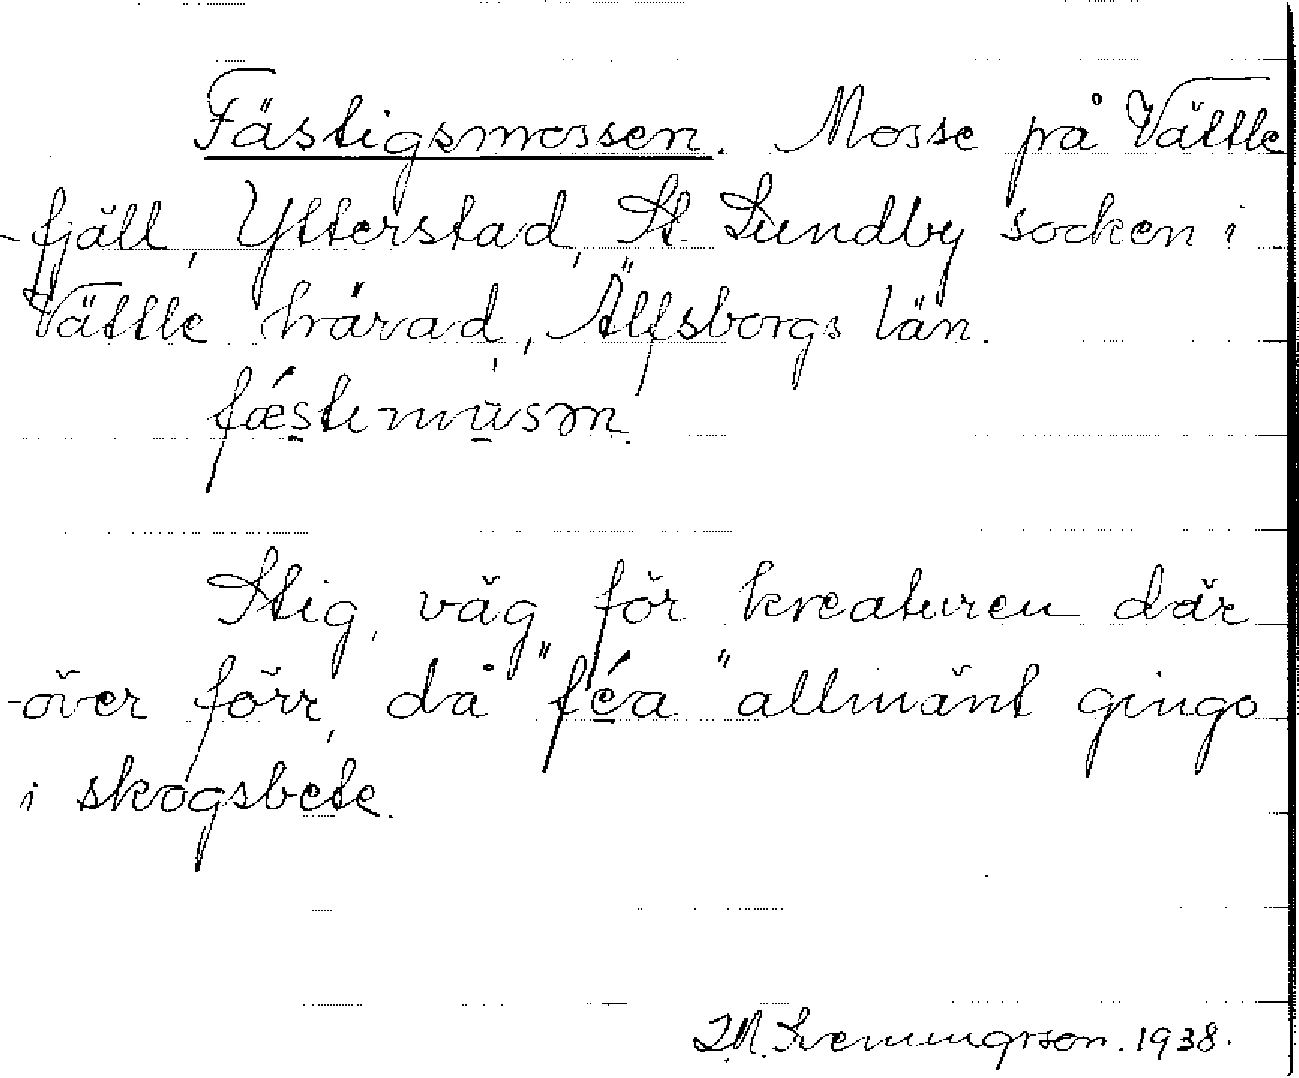 Fästigsmossen. Mosse på Vättle
-fjäll, Ytterstad, St. Lundby socken i
Vättle härad, Älfsborgs län.
fǽstemusən.
Stig, väg för kreaturen där
-över förr, då "féa" allmänt gingo
i skogsbete.
Svenningsson. 1938.